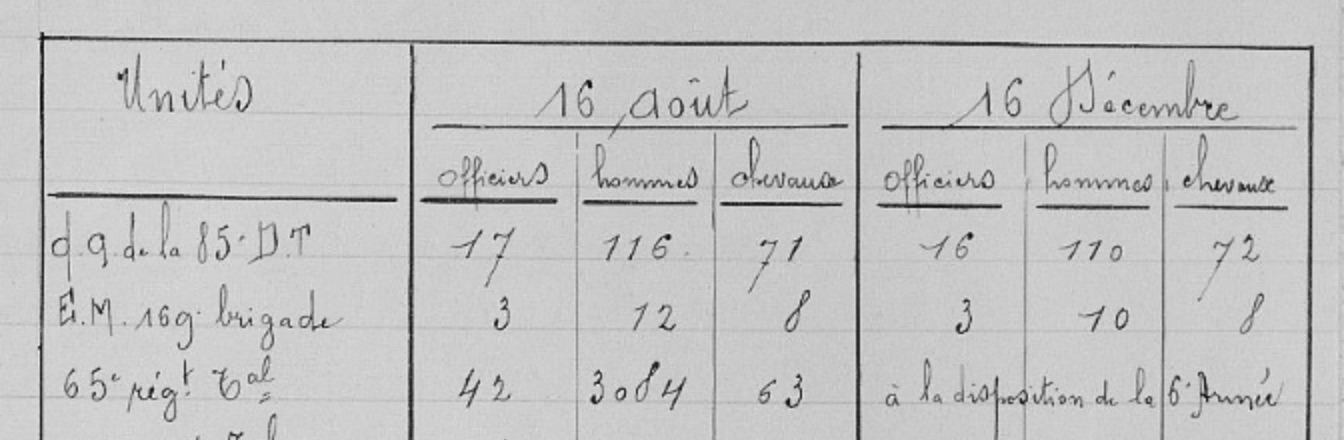 Unités 16 août 16 Décembre
officiers hommes chevaux officiers hommes chevaux
q.g. de la 85e D.T 17 116. 71 16 110 72
E.M. 169e brigade 3 12 8 3 10 8
65e régt Tal 42 3084 63 à la disposition de la 6e Armée